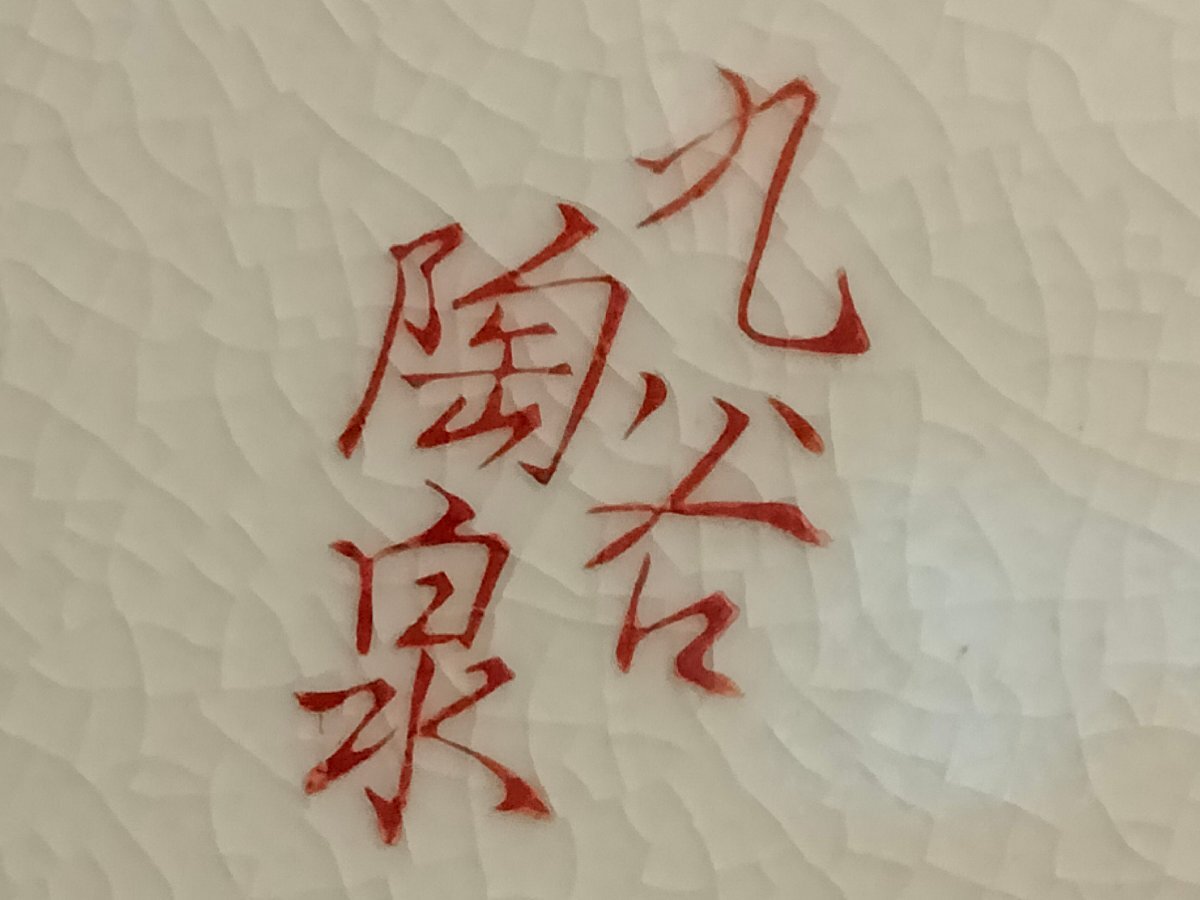 九谷
陶泉